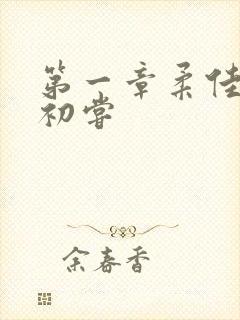 第一章柔佳
初尝
余春香